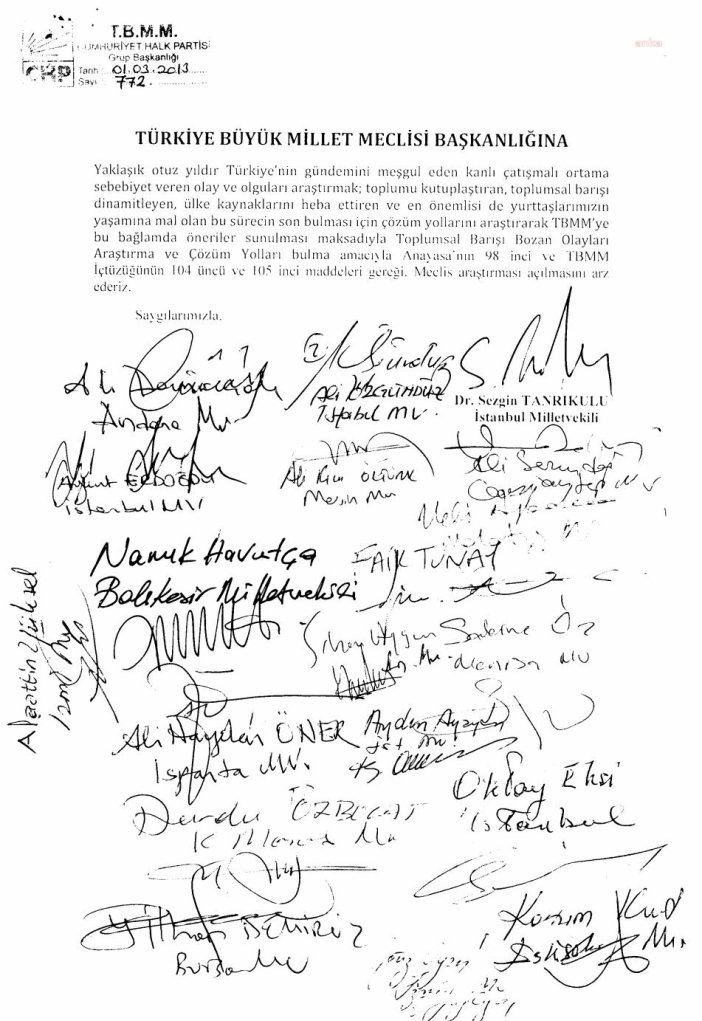 T.B.M.M.
CUMHURİYET HALK PARTİSİ
Grup Başkanlığı
CHP
Tarih : 01.03.2013
Sayı : 772.
anka
TÜRKİYE BÜYÜK MİLLET MECLİSİ BAŞKANLIĞINA
Yaklaşık otuz yıldır Türkiye'nin gündemini meşgul eden kanlı çatışmalı ortama
sebebiyet veren olay ve olguları araştırmak; toplumu kutuplaştıran, toplumsal barışı
dinamitleyen, ülke kaynaklarını heba ettiren ve en önemlisi de yurttaşlarımızın
yaşamına mal olan bu sürecin son bulması için çözüm yollarını araştırarak TBMM'ye
bu bağlamda öneriler sunulması maksadıyla Toplumsal Barışı Bozan Olayları
Araştırma ve Çözüm Yolları bulma amacıyla Anayasa'nın 98 inci ve TBMM
İçtüzüğünün 104 üncü ve 105 inci maddeleri gereği. Meclis araştırması açılmasını arz
ederiz.
Saygılarımızla.
Ali
Ali ÖZGÜNDÜZ
İstanbul MV.
Dr. Sezgin TANRIKULU
İstanbul Milletvekili
Aykut ERDOĞDU
İstanbul MV
Ali Rıza ÖZTÜRK
Mersin Mv
Ali Serindağ
Gaziantep MV
Namık Havutça
Balıkesir Milletvekili
FAİK TUNAY
Alaattin Yüksel
İzmir Mv
Sakine Öz
Manisa MV
Ali Haydar ÖNER
Isparta MV.
Aydın Ayaydın
İst. Mv.
Oktay Ekşi
İstanbul
Durdu ÖZBOLAT
K Maraş Mv
İlhan DEMİRÖZ
Bursa MV
Kazım Kurt
Eskişehir Mv.